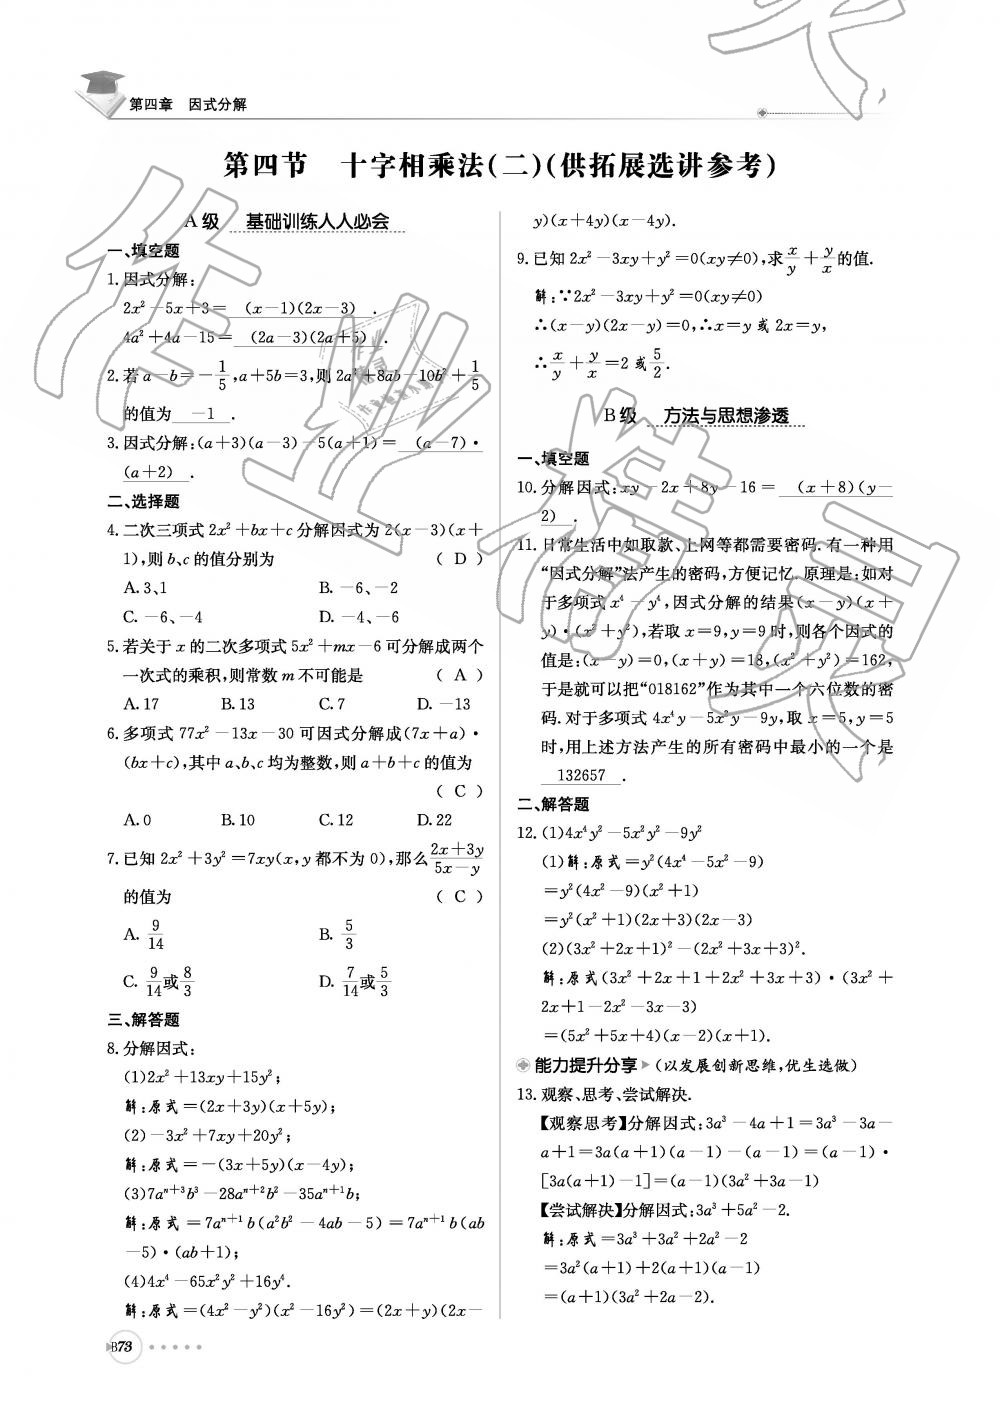 第四章　因式分解
第四节　十字相乘法(二)(供拓展选讲参考)
A级　基础训练人人必会
一、填空题
1. 因式分解:
2x²－5x＋3＝ (x－1)(2x－3) .
4a²＋4a－15＝ (2a－3)(2a＋5) .
2. 若a－b＝－1/5,a＋5b＝3,则2a²＋8ab－10b²＋1/5
的值为 －1 .
3. 因式分解:(a＋3)(a－3)－5(a＋1)＝ (a－7)·
(a＋2) .
二、选择题
4. 二次三项式2x²＋bx＋c分解因式为2(x－3)(x＋
1),则b、c的值分别为 ( D )
A. 3、1　B. －6、－2
C. －6、－4　D. －4、－6
5. 若关于x的二次多项式5x²＋mx－6可分解成两个
一次式的乘积,则常数m不可能是 ( A )
A. 17　B. 13　C. 7　D. －13
6. 多项式77x²－13x－30可因式分解成(7x＋a)·
(bx＋c),其中a、b、c均为整数,则a＋b＋c的值为
( C )
A. 0　B. 10　C. 12　D. 22
7. 已知2x²＋3y²＝7xy(x,y都不为0),那么(2x＋3y)/(5x－y)
的值为 ( C )
A. 9/14　B. 5/3
C. 9/14或8/3　D. 7/14或5/3
三、解答题
8. 分解因式:
(1)2x²＋13xy＋15y²;
解:原式＝(2x＋3y)(x＋5y);
(2)－3x²＋7xy＋20y²;
解:原式＝－(3x＋5y)(x－4y);
(3)7aⁿ⁺³b³－28aⁿ⁺²b²－35aⁿ⁺¹b;
解:原式＝7aⁿ⁺¹b(a²b²－4ab－5)＝7aⁿ⁺¹b(ab
－5)·(ab＋1);
(4)4x⁴－65x²y²＋16y⁴.
解:原式＝(4x²－y²)(x²－16y²)＝(2x＋y)(2x－
B73
y)(x＋4y)(x－4y).
9. 已知2x²－3xy＋y²＝0(xy≠0),求x/y＋y/x的值.
解:∵2x²－3xy＋y²＝0(xy≠0)
∴(x－y)(2x－y)＝0,∴x＝y或2x＝y,
∴x/y＋y/x＝2或5/2.
B级　方法与思想渗透
一、填空题
10. 分解因式:xy－2x＋8y－16＝ (x＋8)(y－
2) .
11. 日常生活中如取款、上网等都需要密码. 有一种用
“因式分解”法产生的密码,方便记忆. 原理是:如对
于多项式x⁴－y⁴,因式分解的结果(x－y)(x＋
y)·(x²＋y²),若取x＝9,y＝9时,则各个因式的
值是:(x－y)＝0,(x＋y)＝18,(x²＋y²)＝162,
于是就可以把“018162”作为其中一个六位数的密
码. 对于多项式4x⁴y－5x²y－9y,取x＝5,y＝5
时,用上述方法产生的所有密码中最小的一个是
132657 .
二、解答题
12. (1)4x⁴y²－5x²y²－9y²
(1)解:原式＝y²(4x⁴－5x²－9)
＝y²(4x²－9)(x²＋1)
＝y²(x²＋1)(2x＋3)(2x－3)
(2)(3x²＋2x＋1)²－(2x²＋3x＋3)².
解:原式(3x²＋2x＋1＋2x²＋3x＋3)·(3x²＋
2x＋1－2x²－3x－3)
＝(5x²＋5x＋4)(x－2)(x＋1).
能力提升分享 (以发展创新思维,优生选做)
13. 观察、思考、尝试解决.
【观察思考】分解因式:3a³－4a＋1＝3a³－3a－
a＋1＝3a(a＋1)(a－1)－(a－1)＝(a－1)·
[3a(a＋1)－1]＝(a－1)(3a²＋3a－1)
【尝试解决】分解因式:3a³＋5a²－2.
解:原式＝3a³＋3a²＋2a²－2
＝3a²(a＋1)＋2(a＋1)(a－1)
＝(a＋1)(3a²＋2a－2).
作业精灵